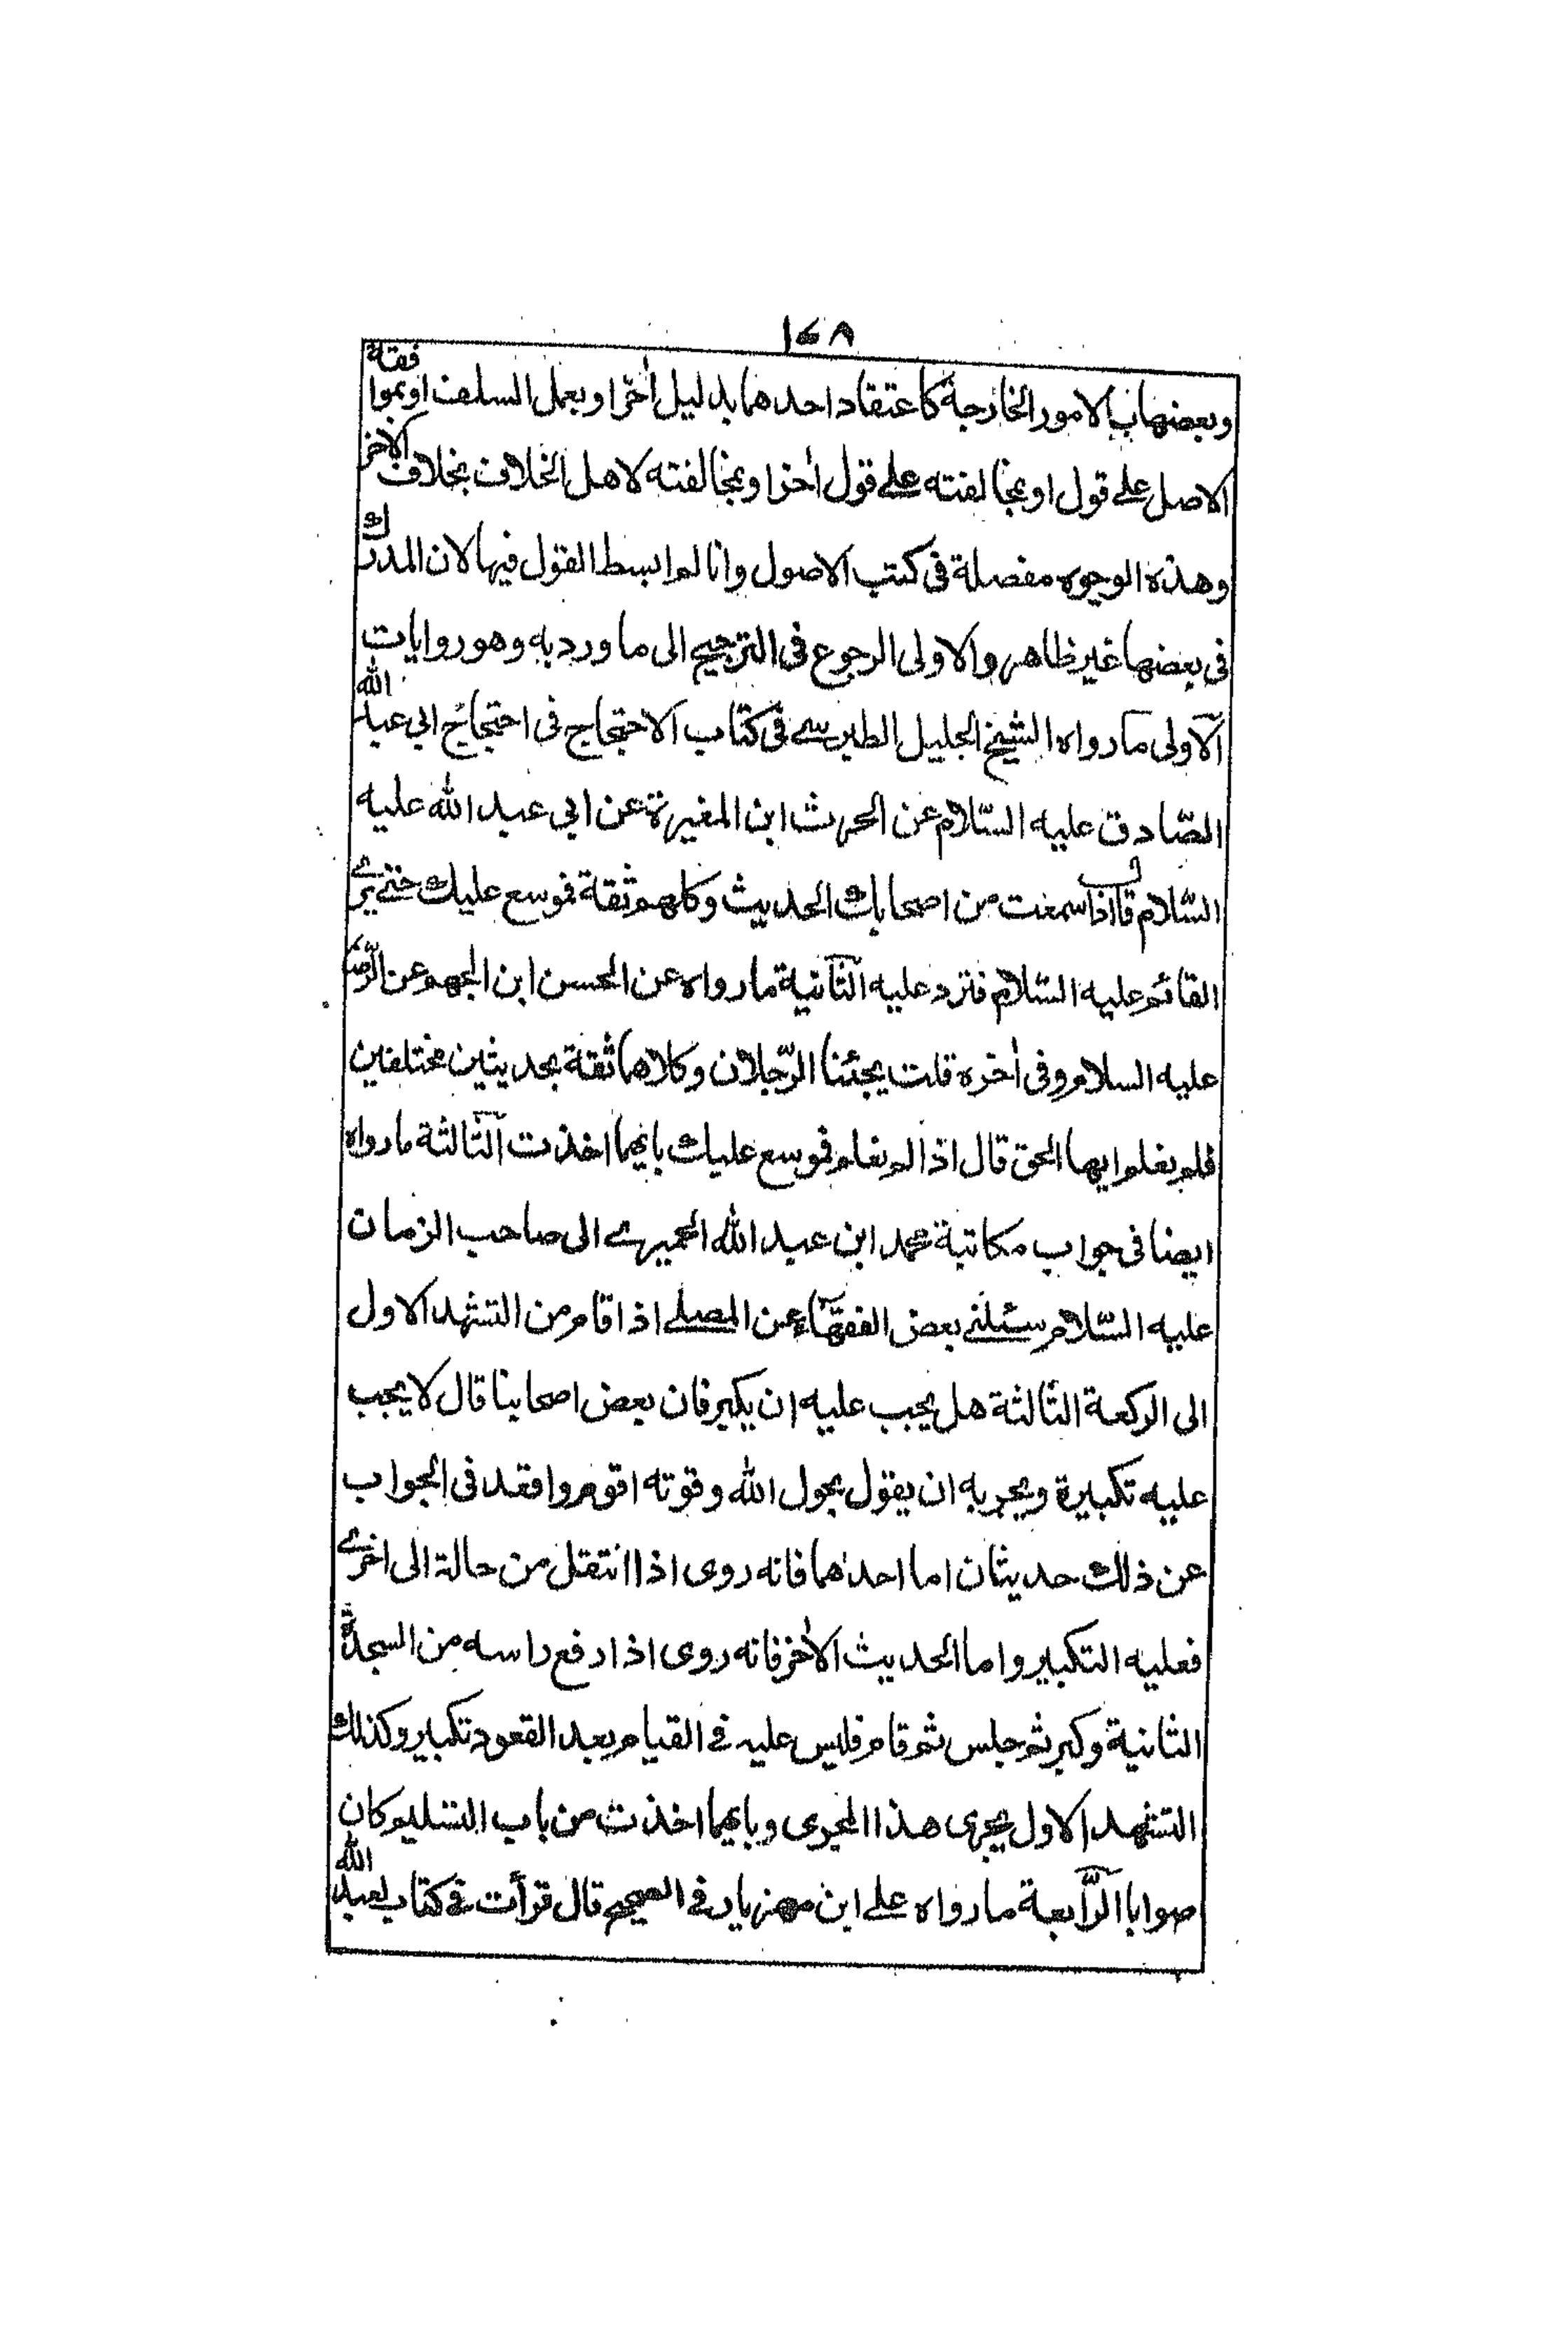 ١٤٨
وبعضها بالامور الخارجة كاعتقاد احدهما بدليل اٰخر او بعمل السلف او بموافقة
الاصل على قول او بمخالفته على قول اٰخر او بمخالفته لاهل الخلاف بخلاف الاخر
وهذه الوجوه مفصلة فى كتب الاصول وانا لم ابسط القول فيها لان المدرك
فى بعضها غير ظاهر والاولى الرجوع فى الترجيح الى ما ورد به وهو روايات
الآولى ما رواه الشيخ الجليل الطبرسے فى كتاب الاحتجاج فى احتجاج ابي عبد الله
الصّادق عليه السّلام عن الحرث ابن المغيرة عن ابي عبد الله عليه
السّلام قال اذا سمعت من اصحابك الحديث وكلهم ثقة فموسع عليك حتے يرے
القائم عليه السّلام فترد عليه الثّآنية ما رواه عن الحسن ابن الجهم عن الرّضا
عليه السلام وفى اٰخره قلت يجئنا الرّجلان وكلاهما ثقة بحديثين مختلفين
فلم نعلم ايهما الحق قال اذا لم نعلم فموسع عليك بايهما اخذت الثّآلثة ما رواه
ايضا فى جواب مكاتبة محمد ابن عبد الله الحميرے الى صاحب الزمان
عليه السّلام سئلنے بعض الفقهآء عن المصلے اذا قام من التشهد الاول
الى الركعة الثّالثة هل يجب عليه ان يكبر فان بعض اصحابنا قال لا يجب
عليه تكبيرة ويجزيه ان يقول بحول الله وقوته اقوم واقعد فى الجواب
عن ذلك حديثان اما احدهما فانه روى اذا انتقل من حالة الى اخرے
فعليه التكبير واما الحديث الاٰخر فانه روى اذا رفع راسه من السجدة
الثانية وكبر ثم جلس ثم قام فليس عليه فے القيام بعد القعود تكبير وكذلك
التشهد الاول يجرى هذا المجرى وبايهما اخذت من باب التسليم كان
صوابا الرّآبعة ما رواه علے ابن مهزيار فے الصحيح قال قرأت فے كتاب لعبد الله